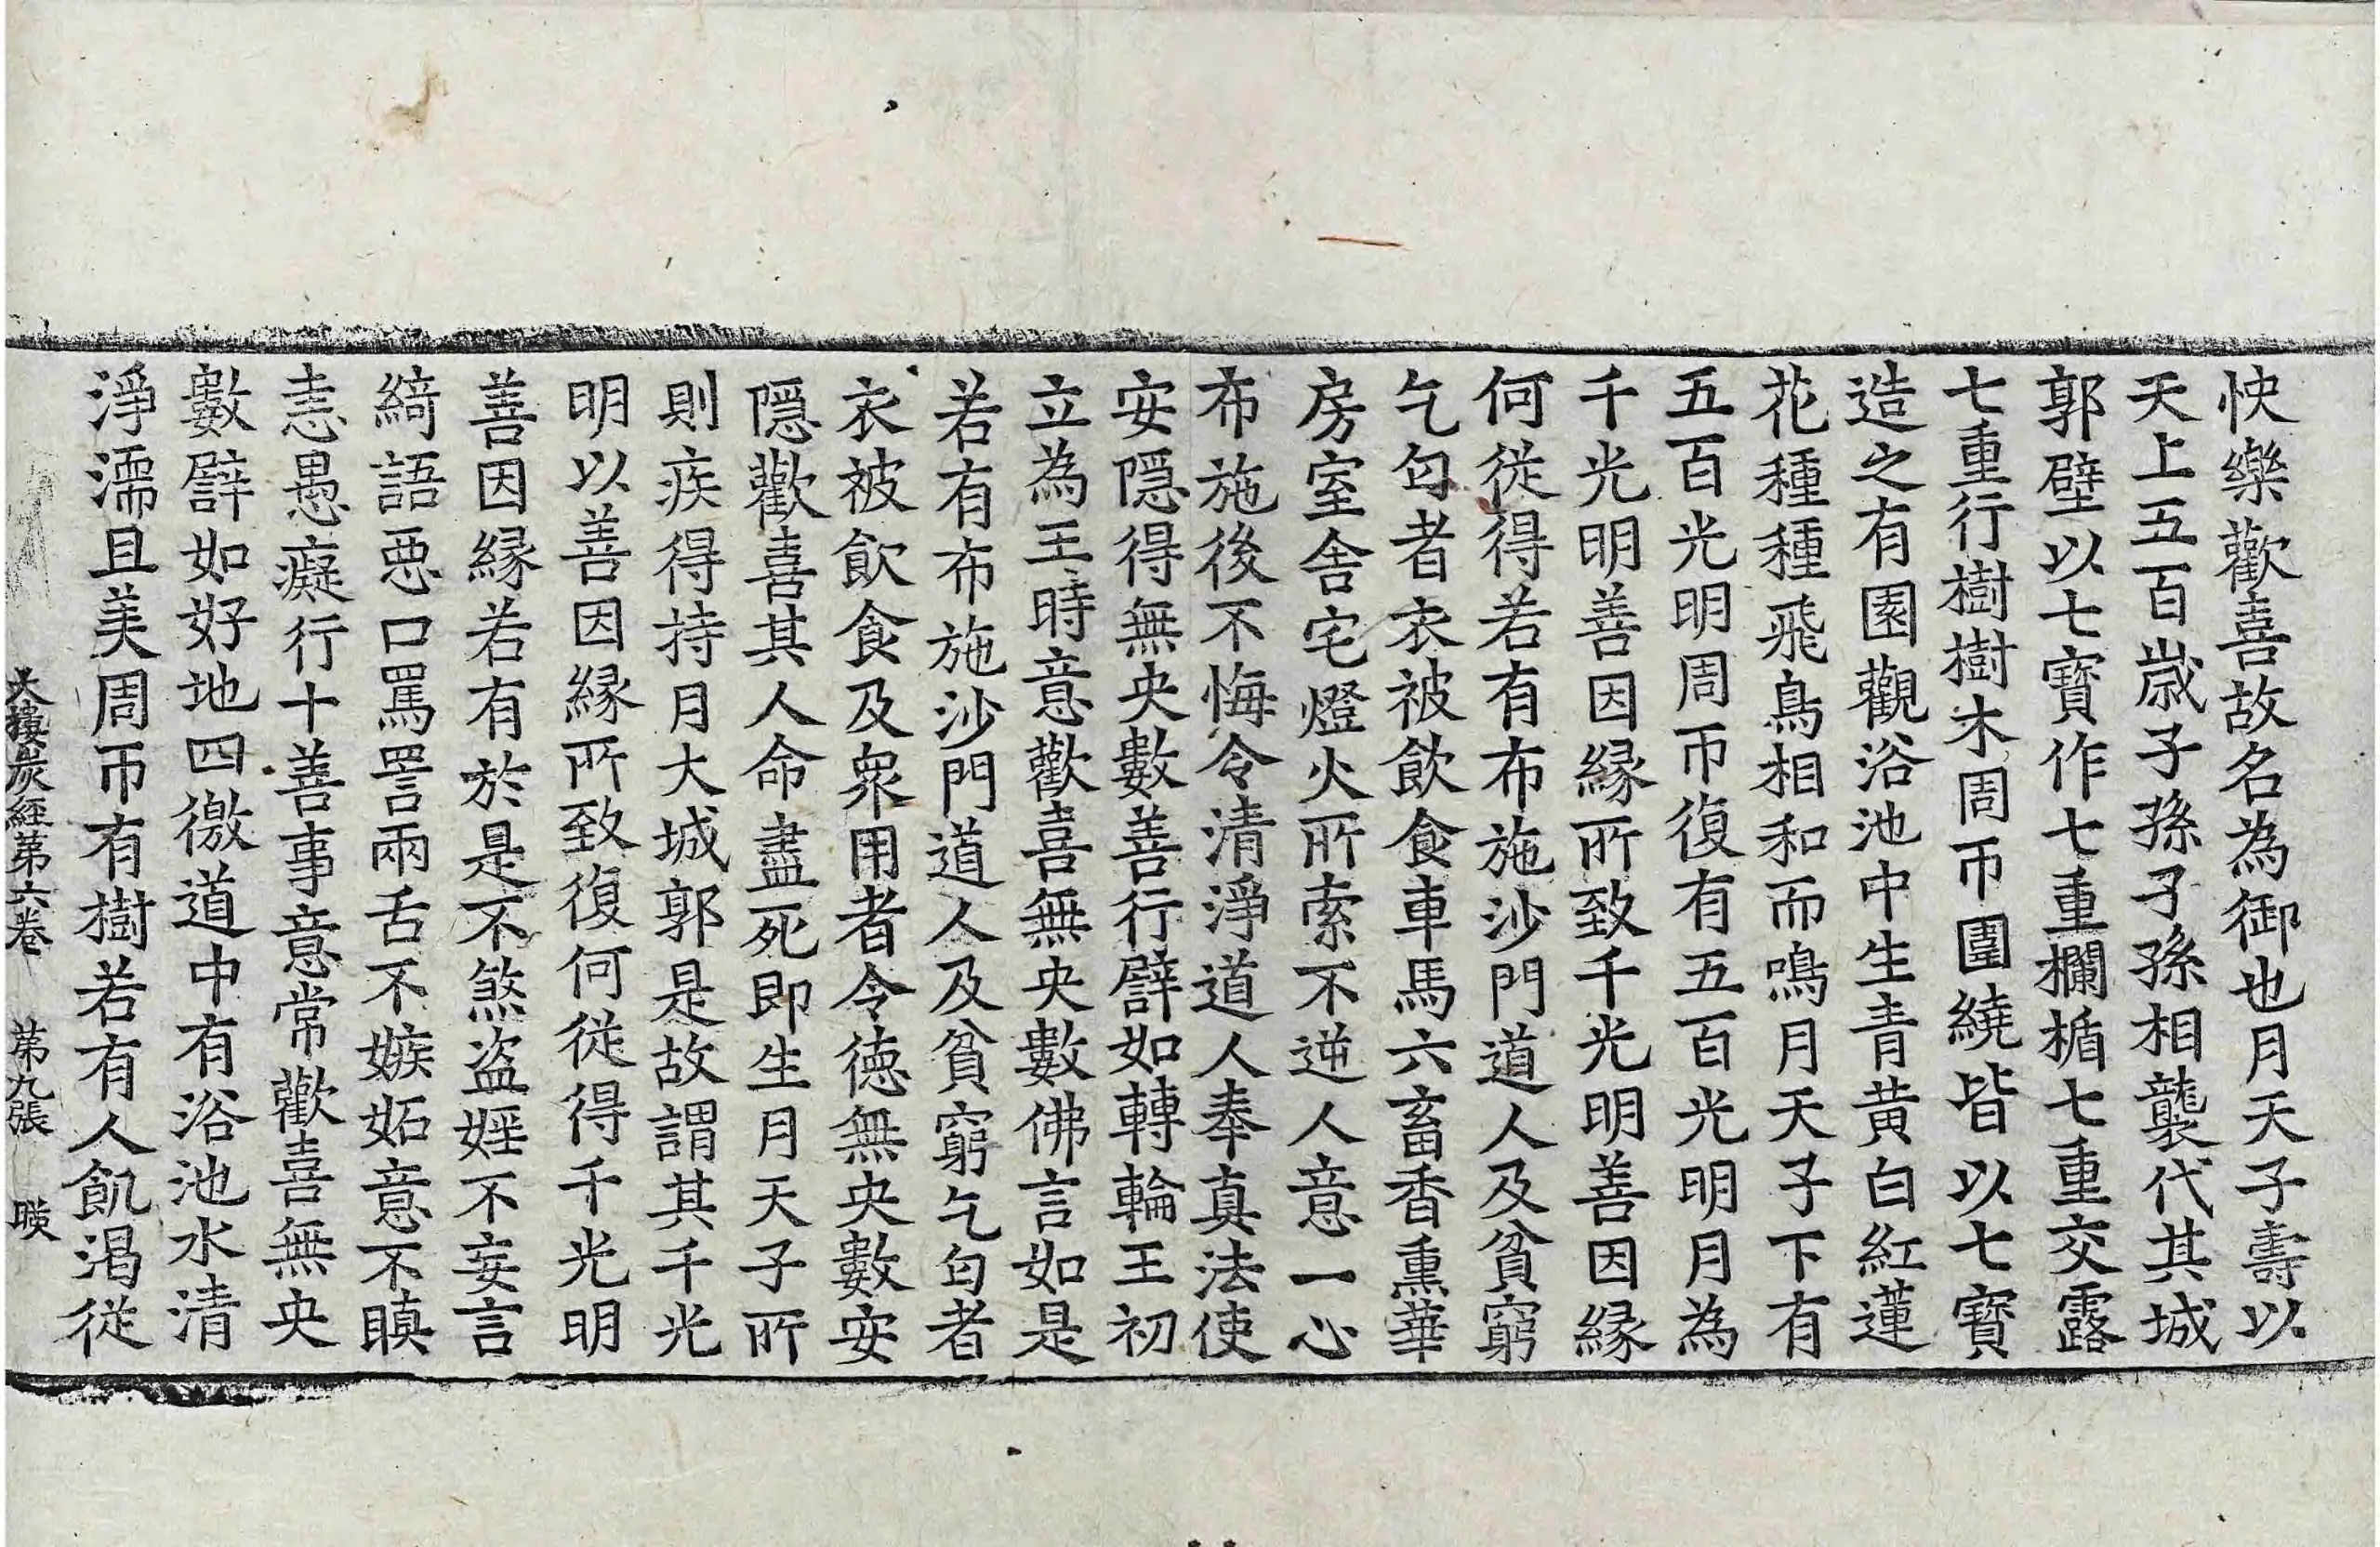 快樂歡喜故名為御也月天子壽以
天上五百歲子孫子孫相襲代其城
郭壁以七寶作七重欄楯七重交露
七重行樹樹木周帀圍繞皆以七寶
造之有園觀浴池中生青黃白紅蓮
花種種飛鳥相和而鳴月天子下有
五百光明周帀復有五百光明月為
千光明善因緣所致千光明善因緣
何從得若有布施沙門道人及貧窮
乞匃者衣被飲食車馬六畜香熏華
房室舍宅燈火所索不逆人意一心
布施後不悔令清淨道人奉真法使
安隱得無央數善行譬如轉輪王初
立為王時意歡喜無央數佛言如是
若有布施沙門道人及貧窮乞匃者
衣被飲食及眾用者令德無央數安
隱歡喜其人命盡死即生月天子所
則疾得持月大城郭是故謂其千光
明以善因緣所致復何從得千光明
善因緣若有於是不煞盜婬不妄言
綺語惡口罵詈兩舌不嫉妬意不瞋
恚愚癡行十善事意常歡喜無央
數譬如好地四徼道中有浴池水清
淨濡且美周帀有樹若有人飢渴從
大樓炭經第六卷 第九張 㷠